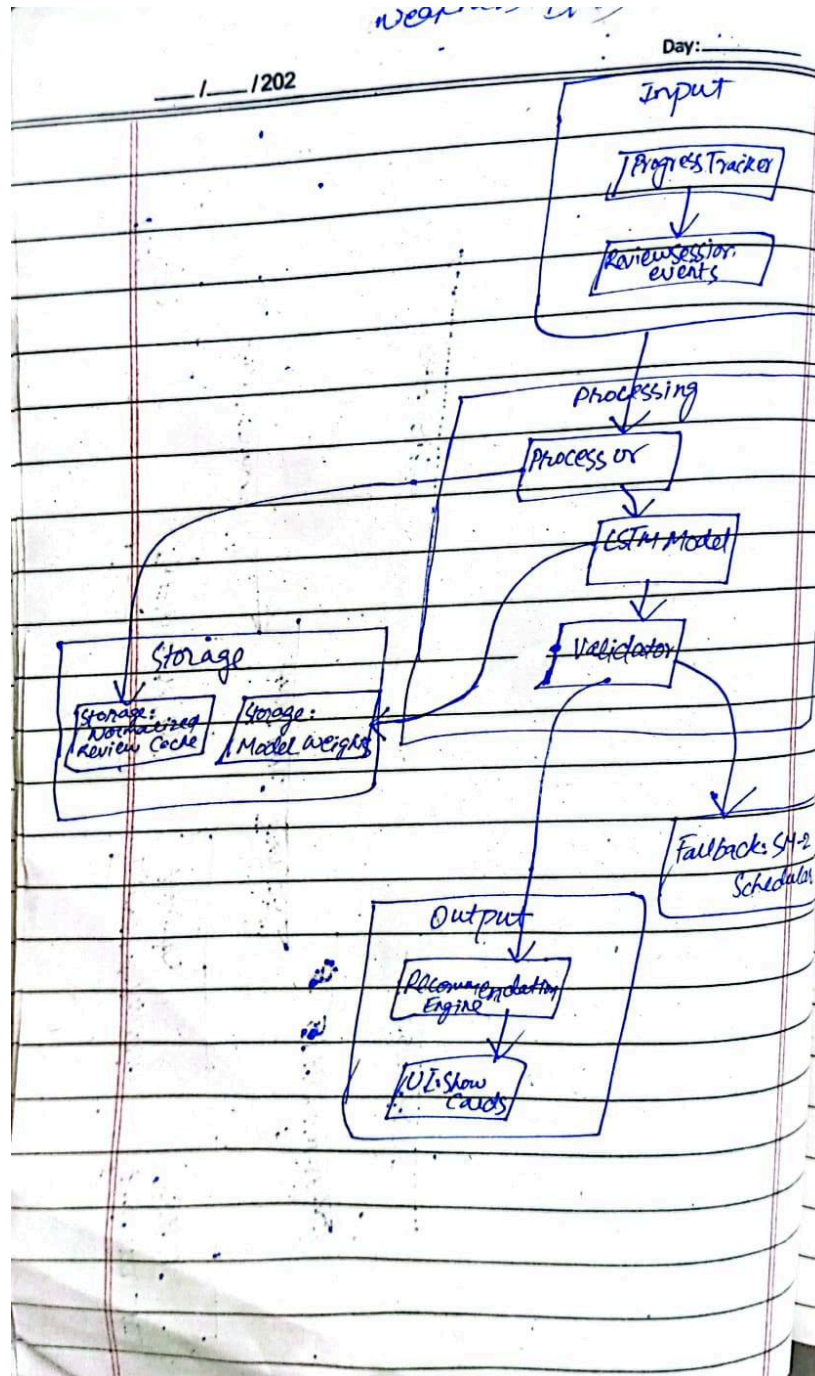 Day:
/ /202
Input
ProgressTracker
ReviewSession
events
Processing
Processor
LSTM Model
Validator
Storage
Storage:
Normalized
Review Cache
Storage:
Model Weights
Fallback: SM-2
Scheduler
Output
Recommendation
Engine
UI: Show
Cards